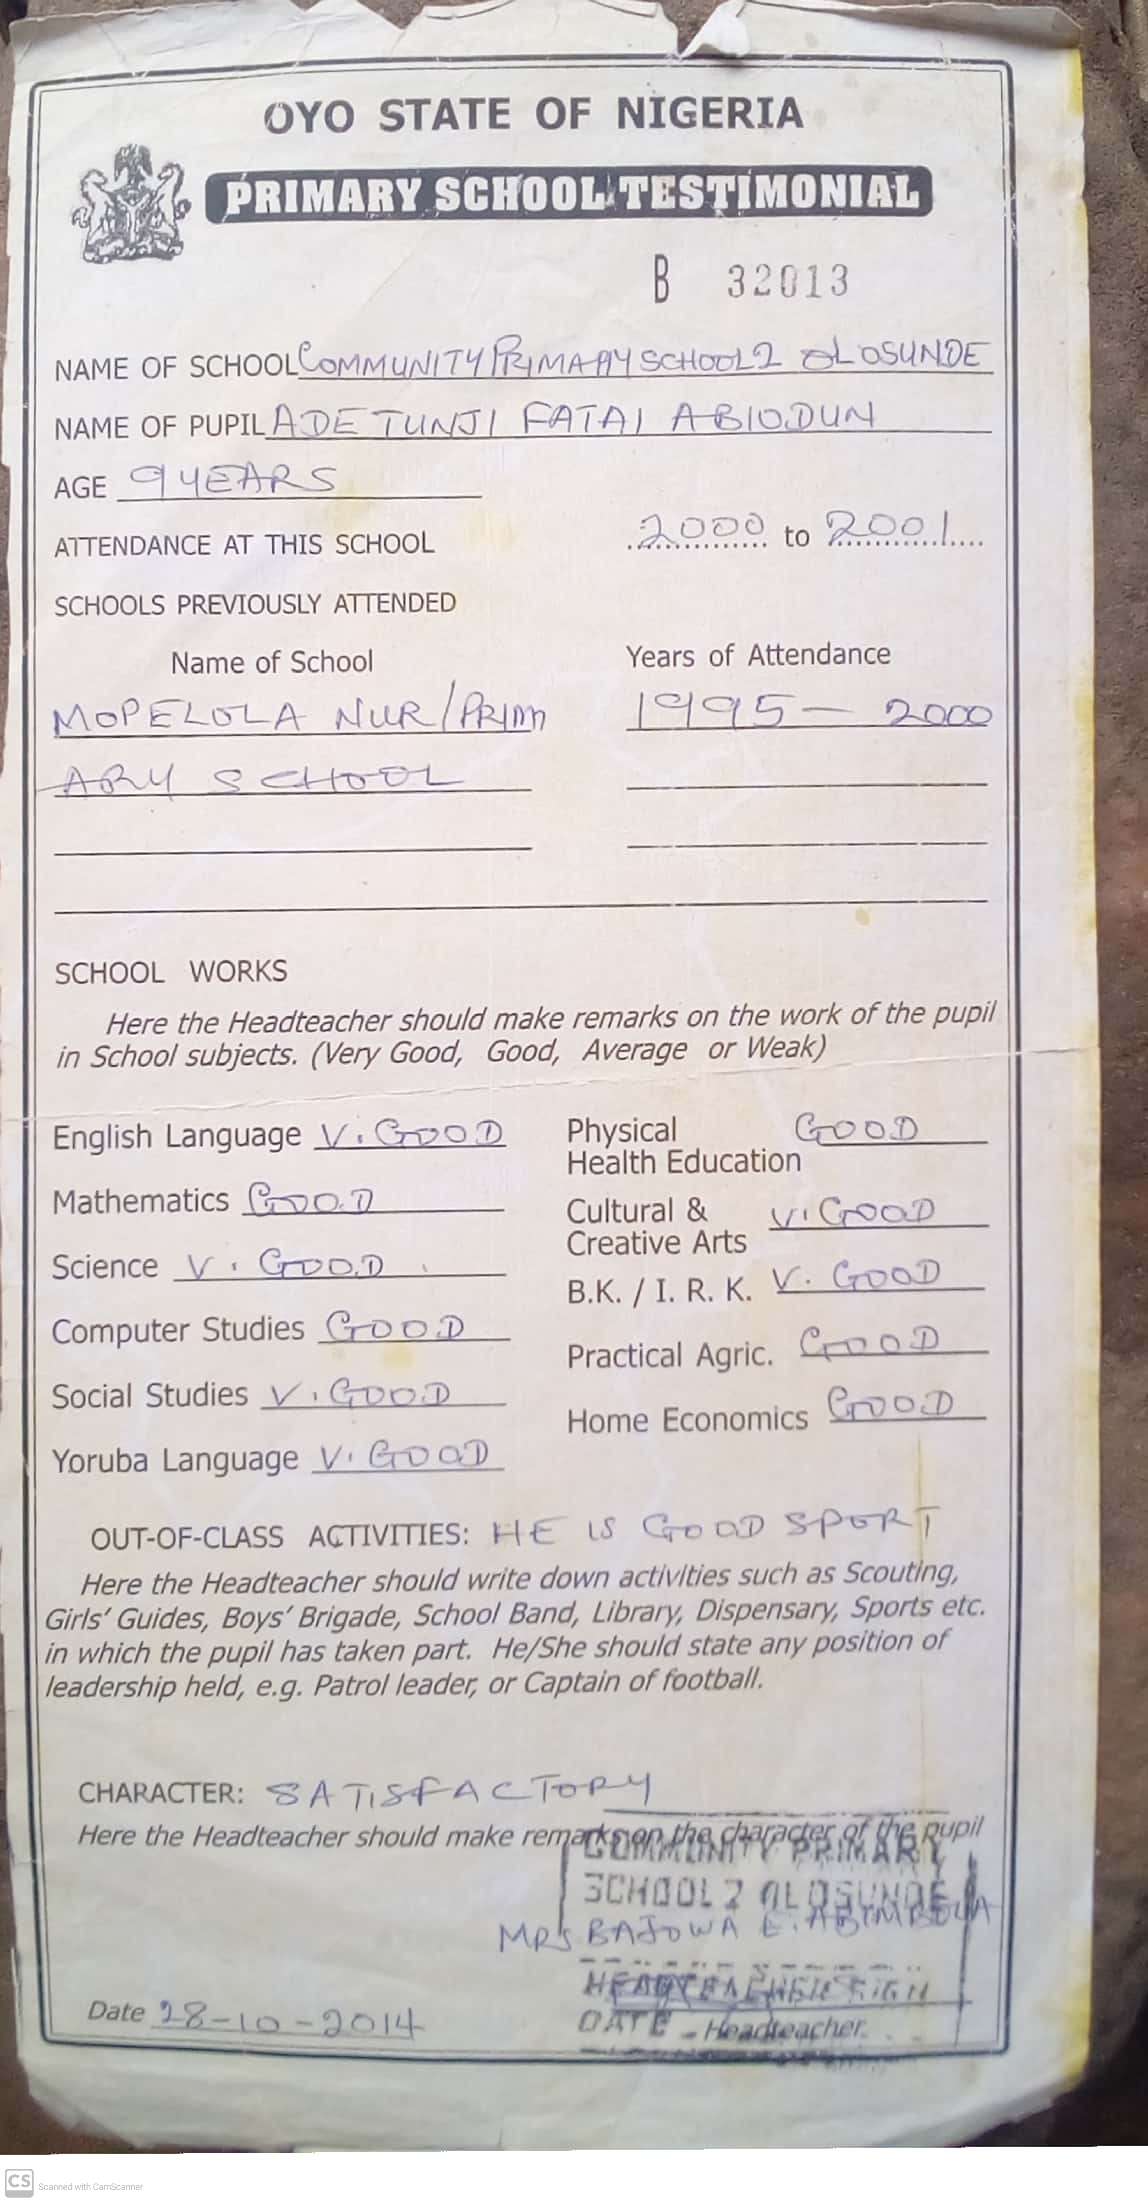 OYO STATE OF NIGERIA
PRIMARY SCHOOL TESTIMONIAL
B 32013
NAME OF SCHOOL COMMUNITY PRIMARY SCHOOL 2 OLOSUNDE
NAME OF PUPIL ADETUNJI FATAI ABIODUN
AGE 9 YEARS
ATTENDANCE AT THIS SCHOOL 2000 to 2001
SCHOOLS PREVIOUSLY ATTENDED
Name of School Years of Attendance
MOPELOLA NUR/PRIM 1995 - 2000
ARY SCHOOL
SCHOOL WORKS
Here the Headteacher should make remarks on the work of the pupil
in School subjects. (Very Good, Good, Average or Weak)
English Language V. GOOD
Mathematics GOOD
Science V. GOOD
Computer Studies GOOD
Social Studies V. GOOD
Yoruba Language V. GOOD
Physical GOOD
Health Education
Cultural & V. GOOD
Creative Arts
B.K. / I. R. K. V. GOOD
Practical Agric. GOOD
Home Economics GOOD
OUT-OF-CLASS ACTIVITIES: HE IS GOOD SPORT
Here the Headteacher should write down activities such as Scouting,
Girls' Guides, Boys' Brigade, School Band, Library, Dispensary, Sports etc.
in which the pupil has taken part. He/She should state any position of
leadership held, e.g. Patrol leader, or Captain of football.
CHARACTER: SATISFACTORY
Here the Headteacher should make remarks on the character of the pupil
COMMUNITY PRIMARY
SCHOOL 2 OLOSUNDE
MRS BAJOWA E. ABIMBOLA
HEADTEACHER SIGN
DATE
Date 28-10-2014
Headteacher.
CS Scanned with CamScanner